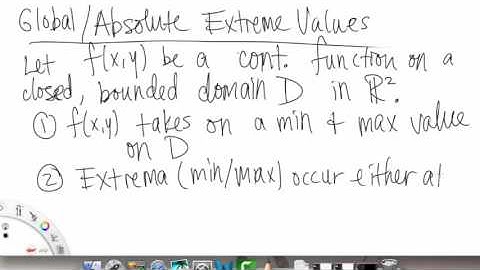 Global/Absolute Extreme Values
Let f(x,y) be a cont. function on a
closed, bounded domain D in ℝ².
① f(x,y) takes on a min & max value
on D
② Extrema (min/max) occur either at